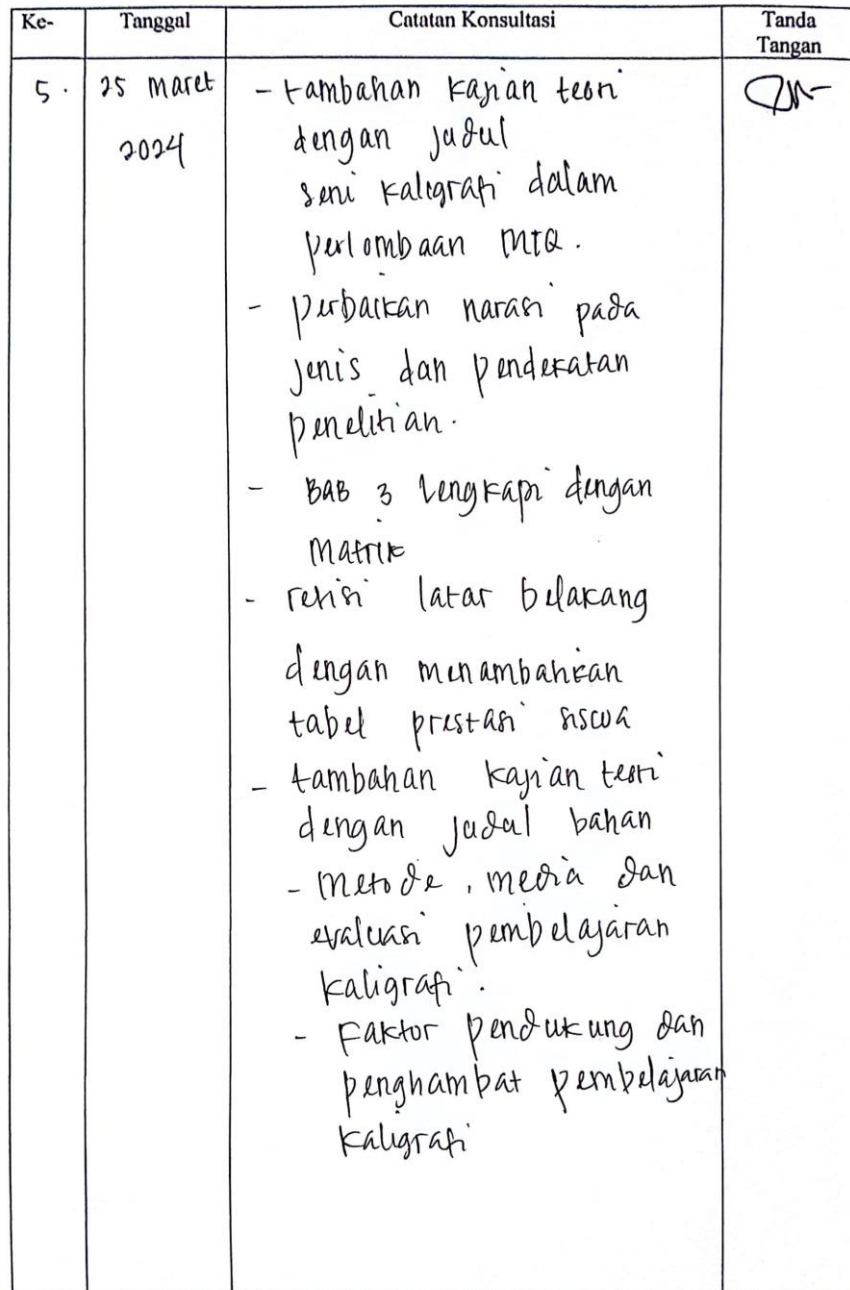 Ke- Tanggal Catatan Konsultasi Tanda Tangan
5. 25 maret 2024
- tambahan kajian teori
dengan judul
seni kaligrafi dalam
perlombaan MTQ.
- perbaikan narasi pada
jenis dan pendekatan
penelitian.
- BAB 3 lengkapi dengan
matrik
- revisi latar belakang
dengan menambahkan
tabel prestasi siswa
- tambahan kajian teori
dengan judul bahan
- metode, media dan
evaluasi pembelajaran
kaligrafi.
- Faktor pendukung dan
penghambat pembelajaran
kaligrafi